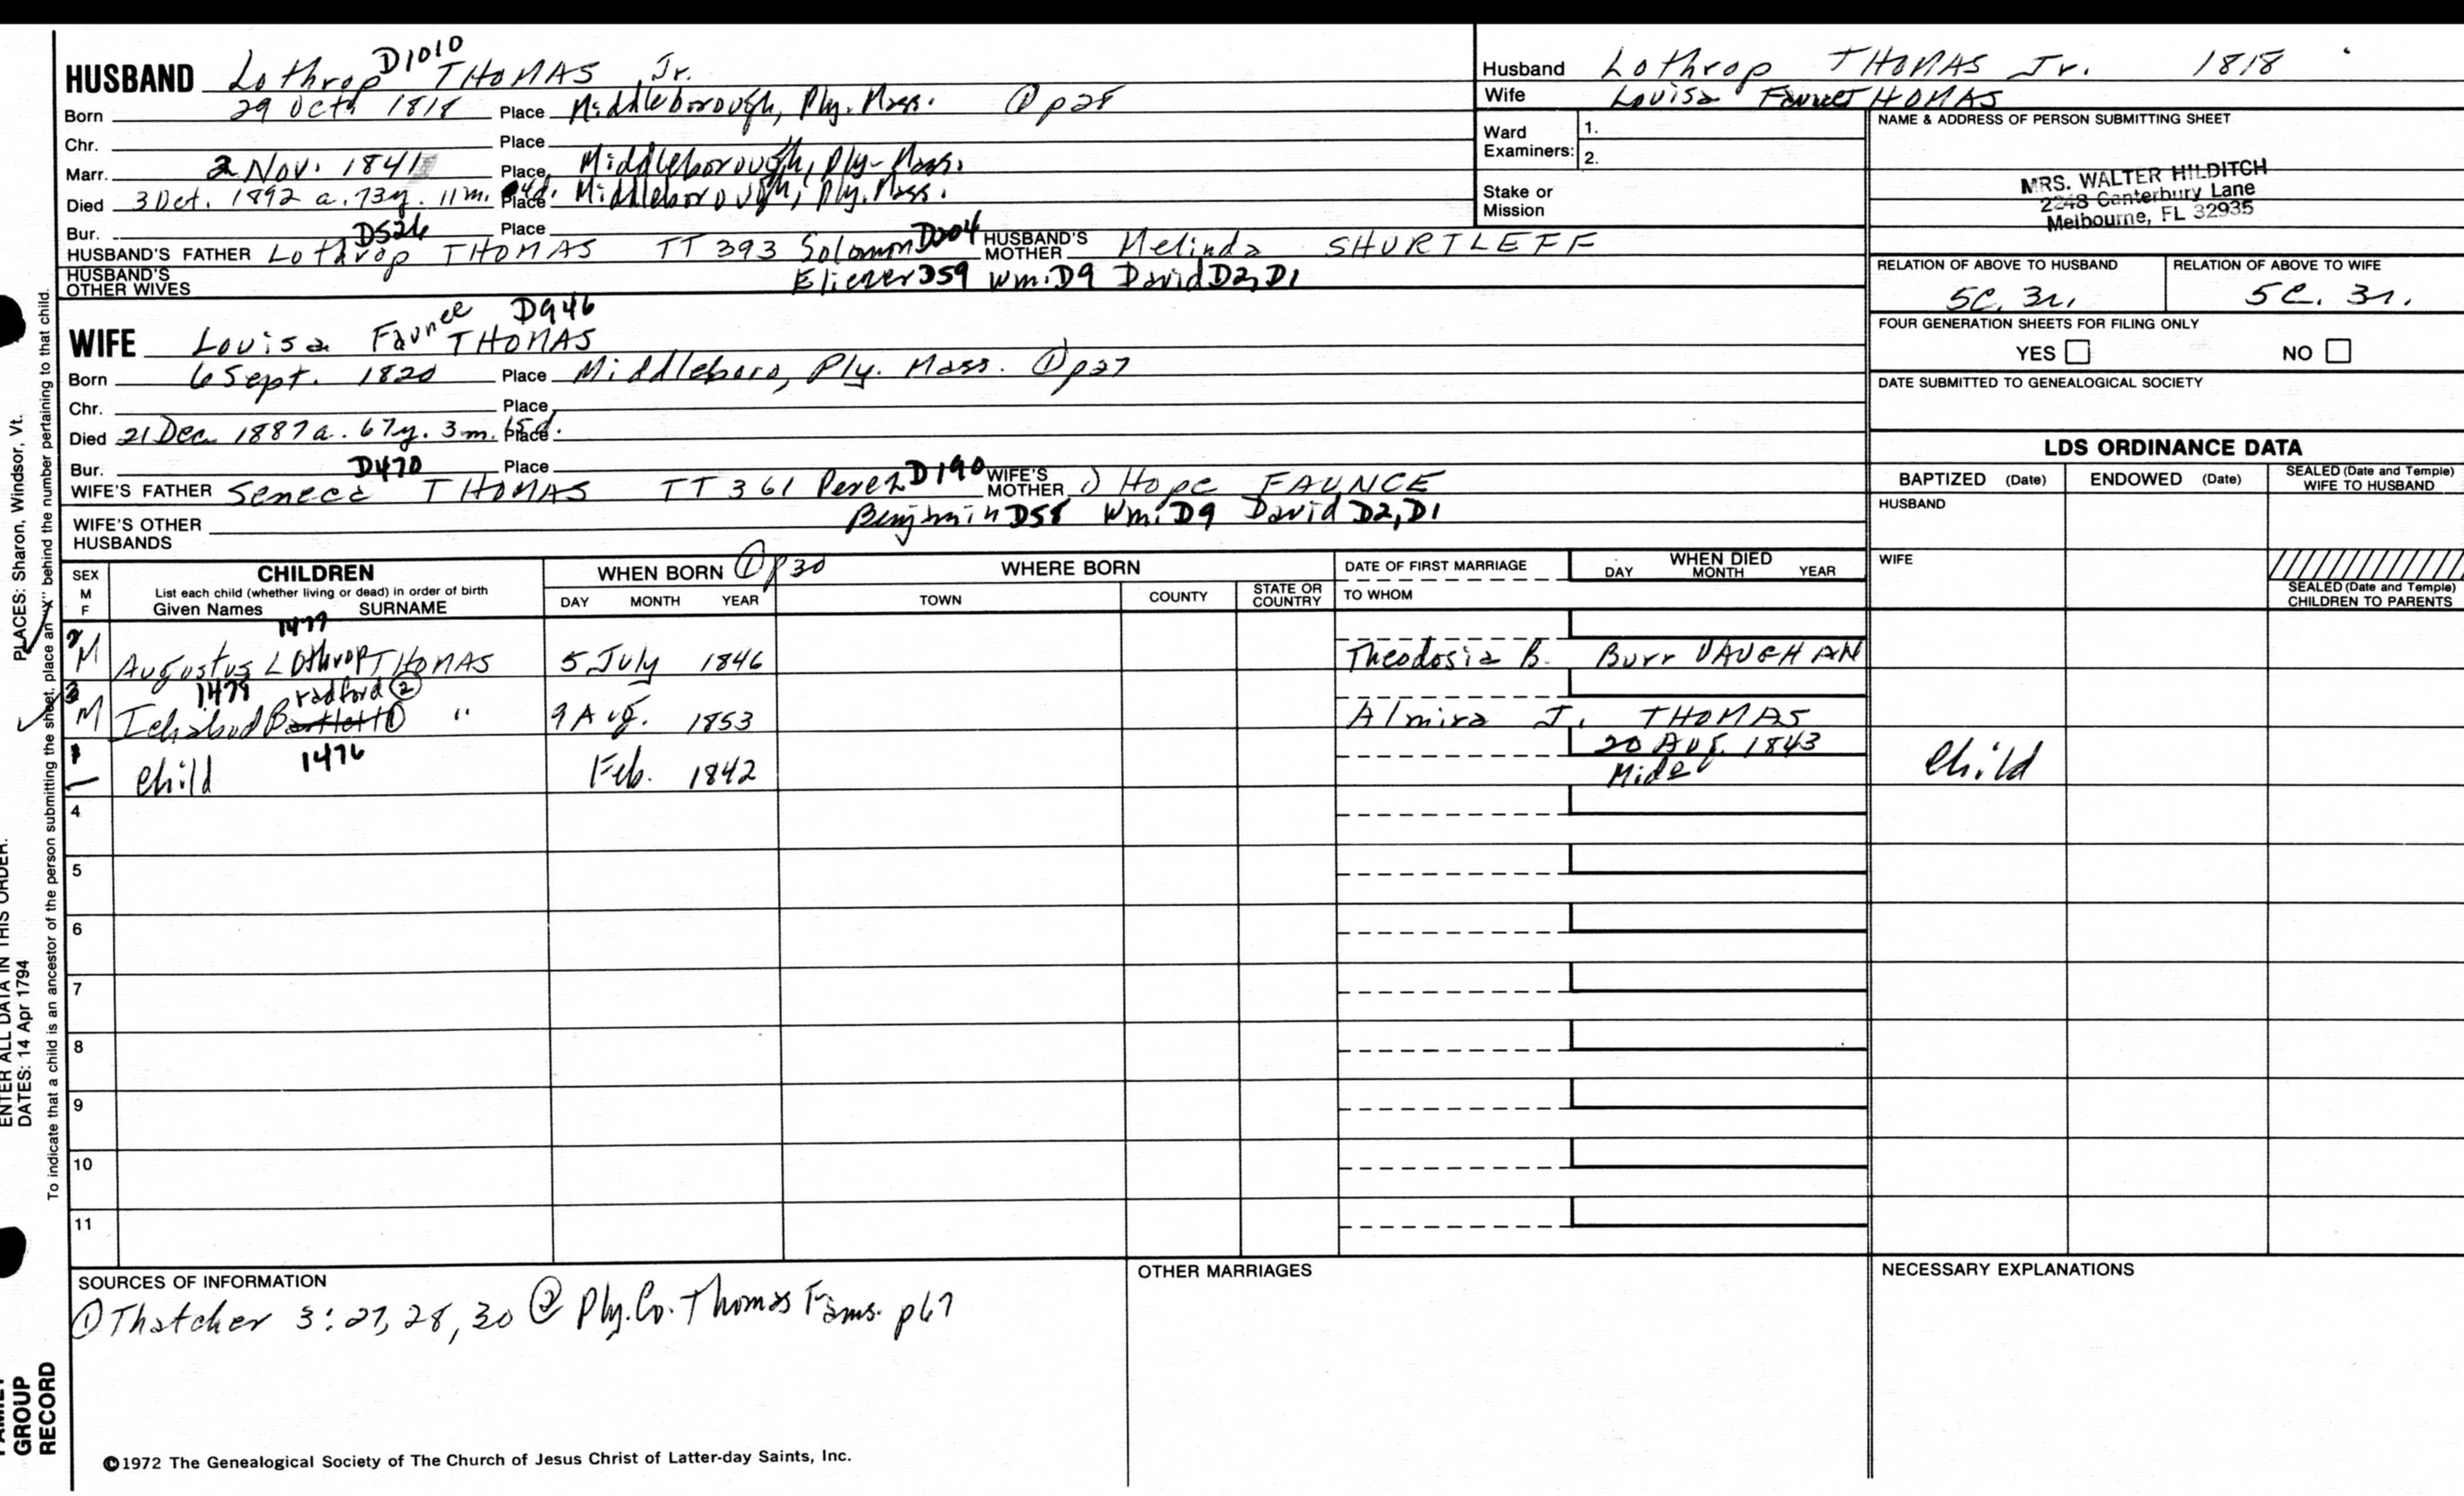 HUSBAND Lothrop D1010 THOMAS Jr.
Born 29 Octh 1818 Place Middleborough, Ply. Mass. ① p28
Chr. Place
Marr. 2 Nov. 1841 Place Middleborough, Ply-Mass.
Died 3 Oct. 1892 a. 73y. 11m. 4d. Place Middleborough, Ply. Mass.
Bur. Place
HUSBAND'S FATHER Lothrop D526 THOMAS TT 393 Solomon D204 HUSBAND'S MOTHER Melinda SHURTLEFF
HUSBAND'S OTHER WIVES Eliezer D59 Wm. D9 David D2, D1
WIFE Louisa Faunce D946 THOMAS
Born 6 Sept. 1820 Place Middleboro, Ply. Mass. ① p27
Chr. Place
Died 21 Dec 1887 a. 67y. 3m. 15d. Place
Bur. Place
WIFE'S FATHER Seneca D470 THOMAS TT 361 Perez D190 WIFE'S MOTHER 1) Hope FAUNCE
WIFE'S OTHER HUSBANDS Benjamin D58 Wm. D9 David D2, D1
Husband Lothrop THOMAS Jr. 1818
Wife Louisa Faunce THOMAS
Ward Examiners: 1.
2.
Stake or Mission
NAME & ADDRESS OF PERSON SUBMITTING SHEET
MRS. WALTER HILDITCH
2248 Canterbury Lane
Melbourne, FL 32935
RELATION OF ABOVE TO HUSBAND RELATION OF ABOVE TO WIFE
5C. 3r. 5C. 3r.
FOUR GENERATION SHEETS FOR FILING ONLY
YES NO
DATE SUBMITTED TO GENEALOGICAL SOCIETY
LDS ORDINANCE DATA
BAPTIZED (Date) ENDOWED (Date) SEALED (Date and Temple) WIFE TO HUSBAND
HUSBAND
WIFE
SEALED (Date and Temple) CHILDREN TO PARENTS
SEX M F CHILDREN WHEN BORN ① p30 WHERE BORN DATE OF FIRST MARRIAGE WHEN DIED
List each child (whether living or dead) in order of birth
Given Names SURNAME DAY MONTH YEAR TOWN COUNTY STATE OR COUNTRY TO WHOM DAY MONTH YEAR
1477
2 M Augustus Lothrop THOMAS 5 July 1846 Theodosia B. Burr VAUGHAN
1478 radford ②
3 M Ichabod Bartlett ① " 9 Aug. 1853 Almira J. THOMAS
1476
1 — Child Feb. 1842 20 Aug. 1843 Mide Child
4
5
6
7
8
9
10
11
SOURCES OF INFORMATION
① Thatcher 3:27, 28, 30 ② Ply. Co. Thomas Fams. p67
OTHER MARRIAGES
NECESSARY EXPLANATIONS
©1972 The Genealogical Society of The Church of Jesus Christ of Latter-day Saints, Inc.
PLACES: Sharon, Windsor, Vt.
To indicate that a child is an ancestor of the person submitting the sheet, place an "X" behind the number pertaining to that child.
ENTER ALL DATA IN THIS ORDER:
DATES: 14 Apr 1794
FAMILY
GROUP
RECORD